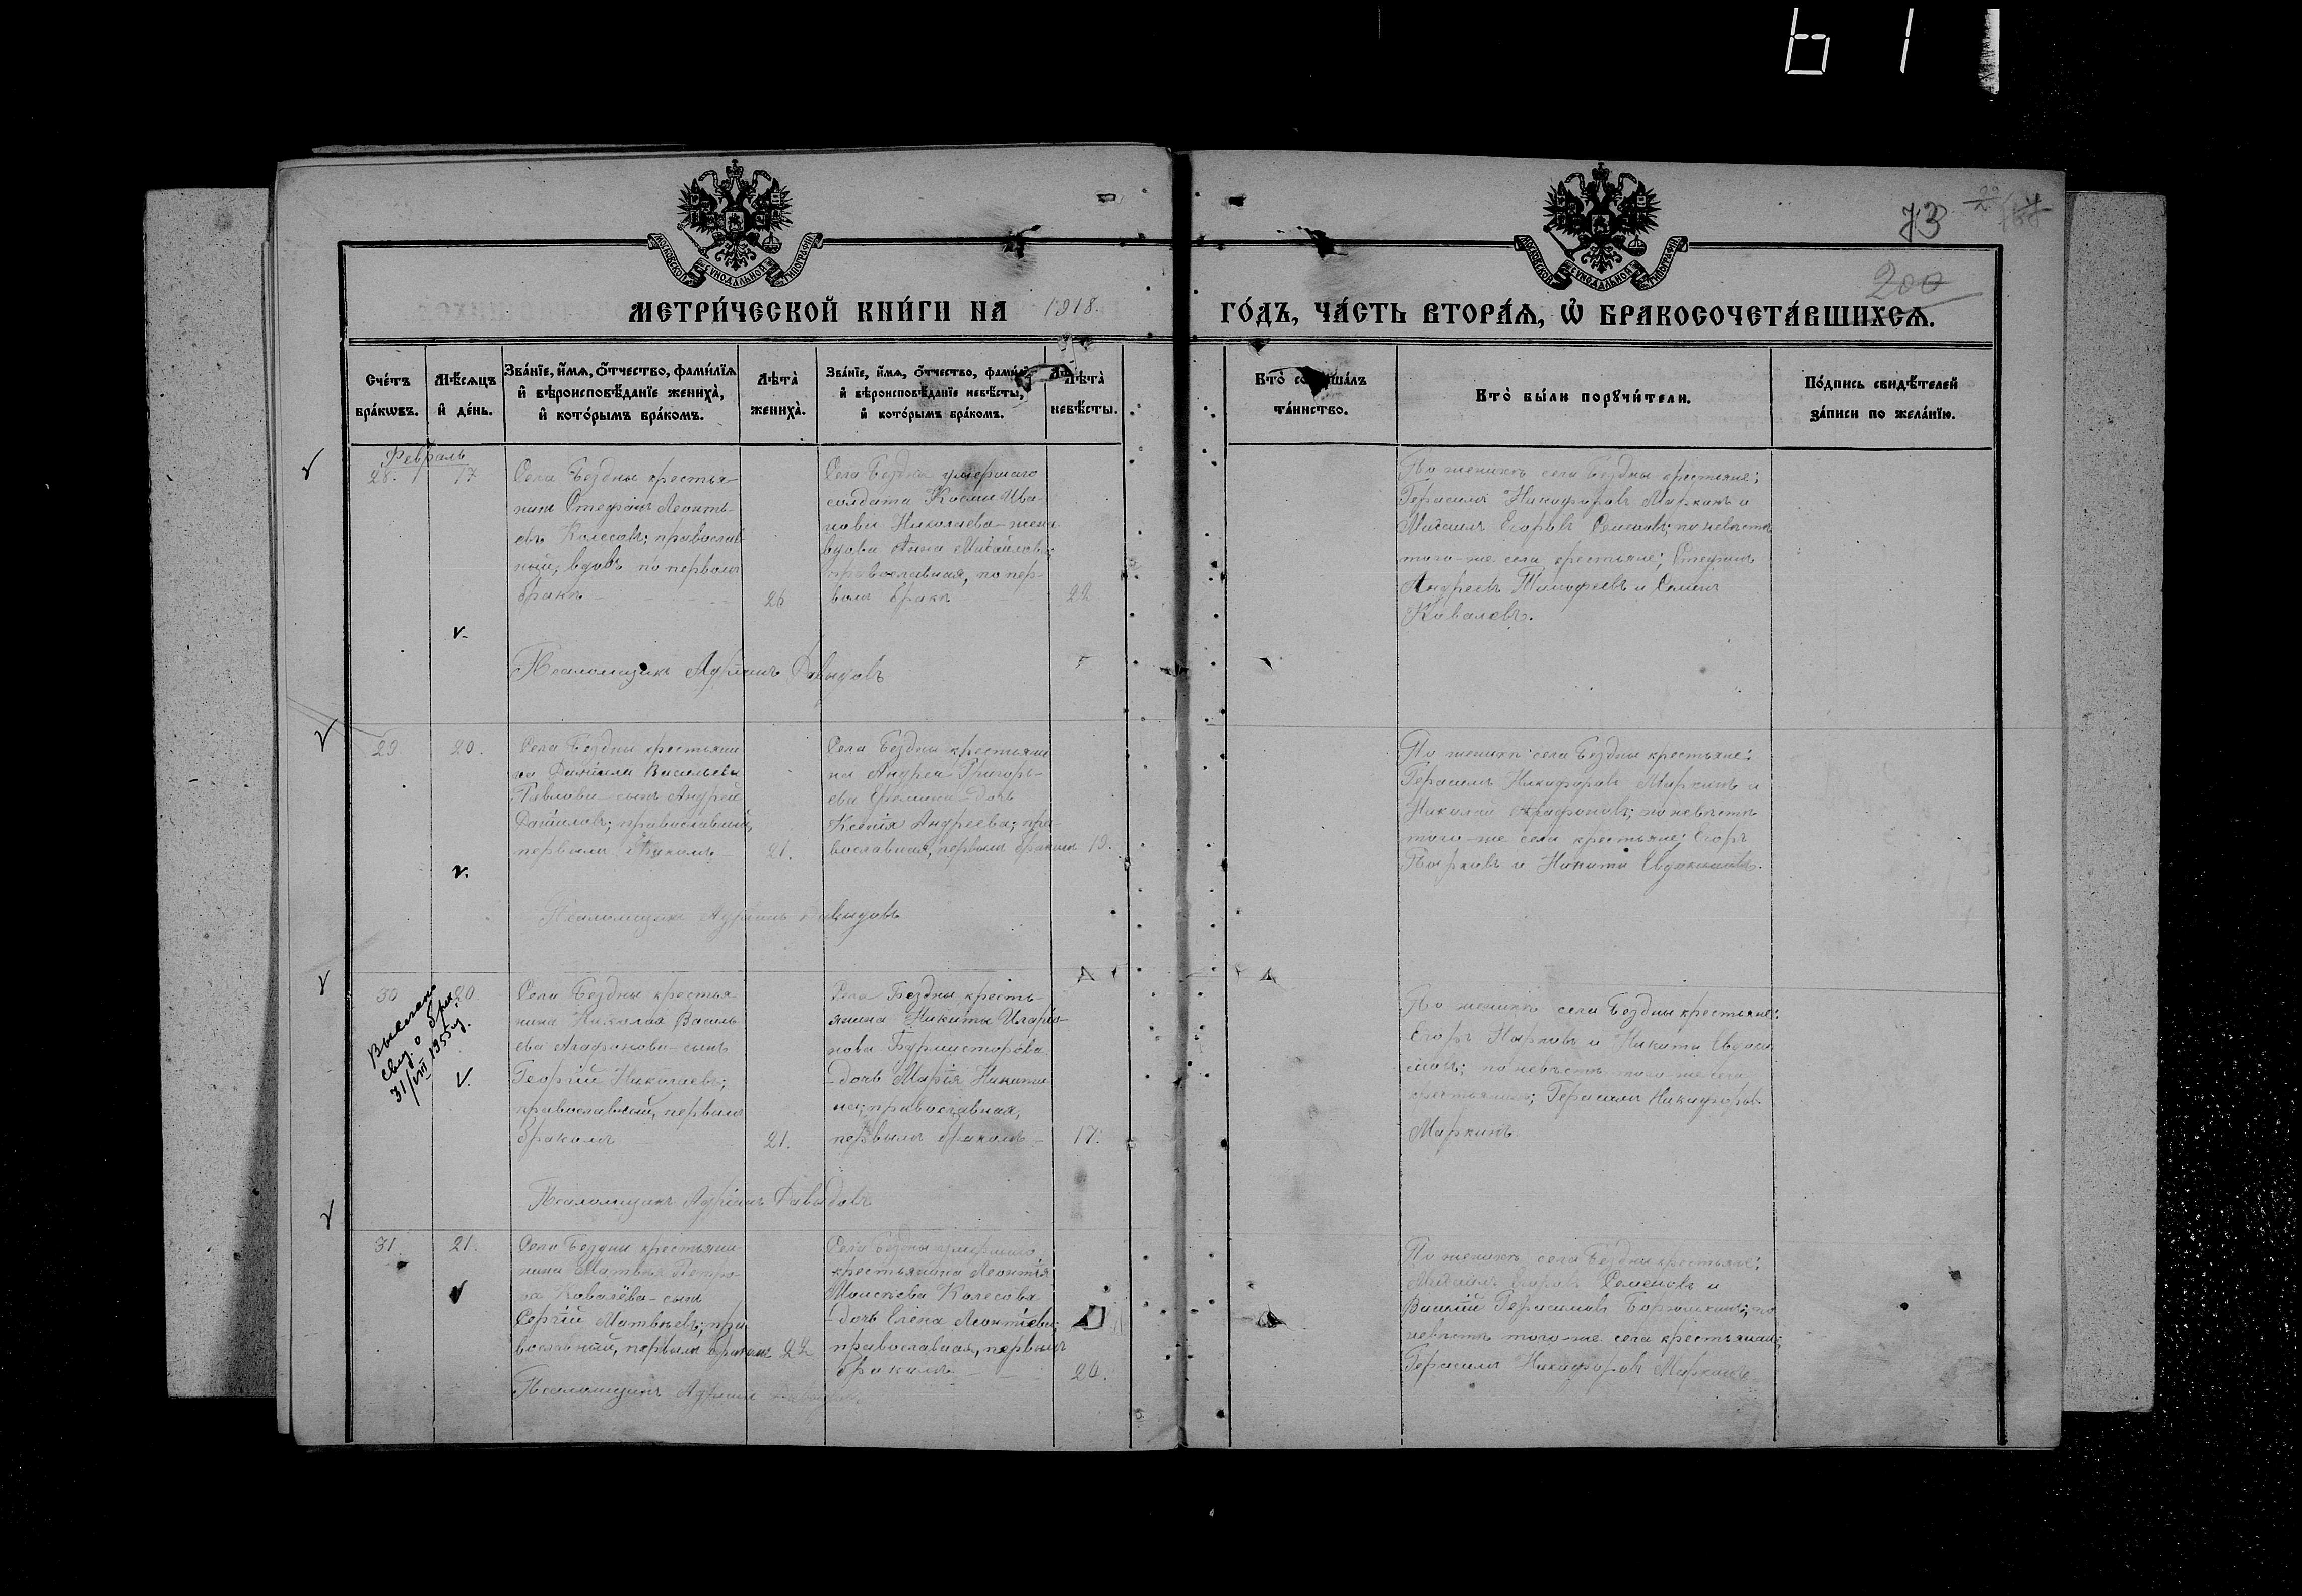 61
МОСКОВСКОЙ СѴНОДАЛЬНОЙ ТИПОГРАФІИ
МОСКОВСКОЙ СѴНОДАЛЬНОЙ ТИПОГРАФІИ
73
200
МЕТРИ́ЧЕСКОЙ КНИ́ГИ НА 1918.
ГО́ДЪ, ЧА́СТЬ ВТОРА́Ѧ, Ѽ БРАКОСОЧЕТА́ВШИХСѦ.
Сче́тъ бра́кωвъ.
Мѣ́сѧцъ и҆ де́нь.
Зва́нїе, и҆́мѧ, ѻ҆́тчество, фами́лїѧ и҆ вѣроисповѣ́данїе жениха̀, и҆ кото́рымъ бра́комъ.
Лѣта̀ жениха̀.
Зва́нїе, и҆́мѧ, ѻ҆́тчество, фами́лїѧ и҆ вѣроисповѣ́данїе невѣ́сты, и҆ кото́рымъ бра́комъ.
Лѣта̀ невѣ́сты.
Кто̀ соверша́лъ та́инство.
Кто̀ бы́ли порꙋчи́тели.
По́дпись свидѣ́телей за́писи по жела́нїю.
Февраль
28.
17
Села Бездны крестья-
нинъ Стефанъ Леонть-
евъ Колесовъ; православ-
ный, вдовъ по первомъ
бракѣ
26
Села Бездны умершаго
солдата Космы Ива-
нова Николаева жена
вдова Анна Михайлова;
православная, по пер-
вомъ бракѣ
22
По женихѣ села Бездны крестьяне:
Герасимъ Никифоровъ Маркинъ и
Михаилъ Егоровъ Семеновъ; по невѣстѣ
того-же села крестьяне; Стефанъ
Андреевъ Тимофеевъ и Семенъ
Ковалевъ.
Псаломщикъ Адріанъ Давыдовъ
29.
20.
Села Бездны крестьяни-
на Даніила Васильева
Павлова сынъ Андрей
Даніиловъ; православный,
первымъ бракомъ
21.
Села Бездны крестьяни-
на Андрея Григорь-
ева Фомина дочь
Ксенія Андреева; пра-
вославная, первымъ бракомъ
19.
По женихѣ села Бездны крестьяне:
Герасимъ Никифоровъ Маркинъ и
Николай Агафоновъ; по невѣстѣ
того-же села крестьяне: Егоръ
и Никита Евдокимовъ.
Псаломщикъ Адріанъ Давыдовъ
30
20
Выслано
свид. о брак.
31/VIII 1955 г.
Села Бездны крестья-
нина Николая Василь-
ева Агафонова сынъ
Георгій Николаевъ;
православный, первымъ
бракомъ
21.
Села Бездны кресть-
янина Никиты Иларіо-
нова Бурмистрова
дочь Марія Никити-
на; православная,
первымъ бракомъ
17.
По женихѣ села Бездны крестьяне:
Егоръ и Никита Евдоки-
мовъ; по невѣстѣ того-же села
крестьянинъ; Герасимъ Никифоровъ
Маркинъ
Псаломщикъ Адріанъ Давыдовъ
31.
21.
Села Бездны крестьяни-
нина Матвѣя Петро-
ва Ковалёва сынъ
Сергій Матвѣевъ; пра-
вославный, первымъ бракомъ
22
Села Бездны умершаго
крестьянина Леонтія
Моисеева Колесова
дочь Елена Леонтіева;
православная, первымъ
бракомъ
20.
По женихѣ села Бездны крестьяне:
Михаилъ Егоровъ Семеновъ и
Василій Герасимовъ; по
невѣстѣ того-же села крестьянин;
Герасимъ Никифоровъ Маркинъ
Псаломщикъ Адріанъ